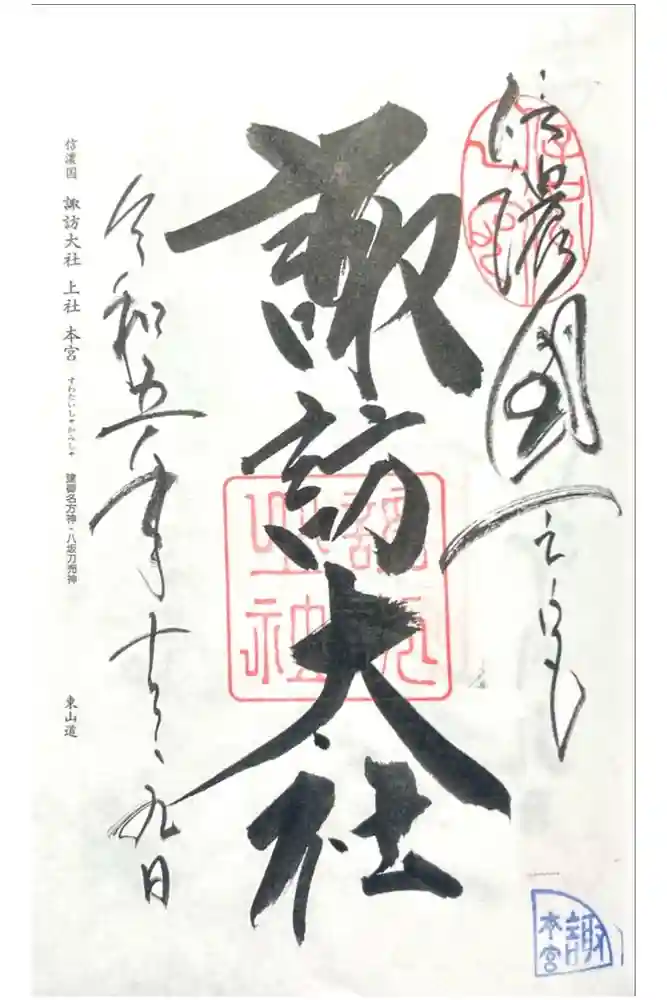 信濃國一之宮
諏訪大社
令和五年十二月九日
信濃国 諏訪大社 上社 本宮 すわたいしゃかみしゃ 建御名方神・八坂刀売神 東山道
諏
本宮